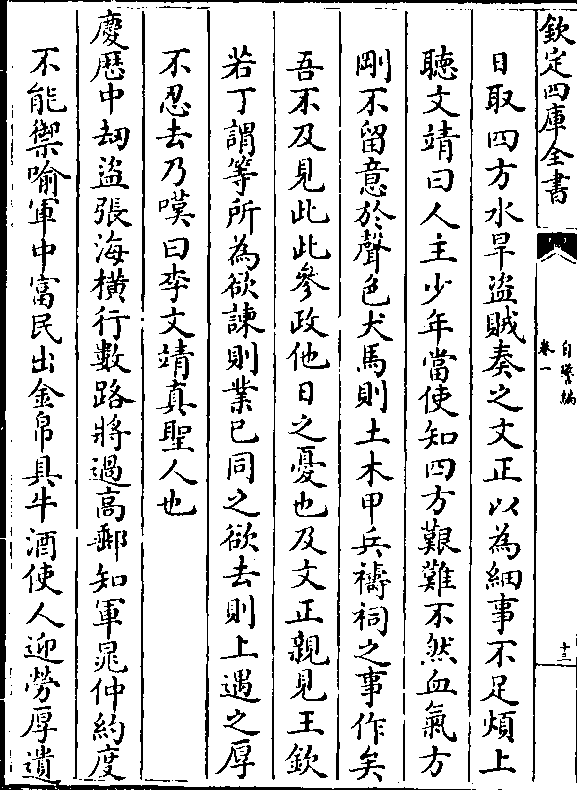 欽定四庫全書
自警編
卷一
十三
日取四方水旱盜賊奏之文正以為細事不足煩上
聽文靖曰人主少年當使知四方艱難不然血氣方
剛不留意於聲色犬馬則土木甲兵禱祠之事作矣
吾不及見此此參政他日之憂也及文正親見王欽
若丁謂等所為欲諫則業已同之欲去則上遇之厚
不忍去乃嘆曰李文靖真聖人也
慶歴中刼盜張海橫行數路將過高郵知軍晁仲約度
不能禦喻軍中富民出金帛具牛酒使人迎勞厚遺